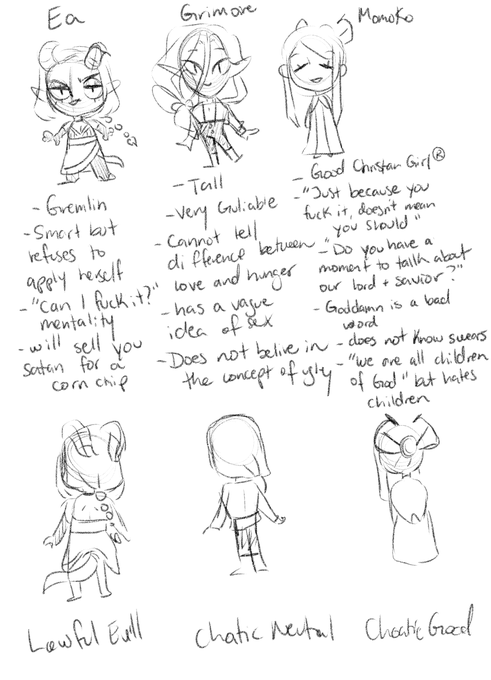 Ea
- Gremlin
- Smart but
refuses to
apply herself
- "Can I fuck it?"
mentality
- will sell you
satan for a
corn chip
Lawful Evill
Grimore
- Tall
- Very Guliable
- Cannot tell
difference between
love and hunger
- has a vague
idea of sex
- Does not belive in
the concept of ugly
Chatic Neutral
Momoko
- Good Christan Girl®
- "Just because you
fuck it, doesn't mean
you should"
- "Do you have a
moment to talk about
our lord + savior?"
- Goddamn is a bad
word
- does not know swears
- "we are all children
of God" but hates
children
Choatic Good